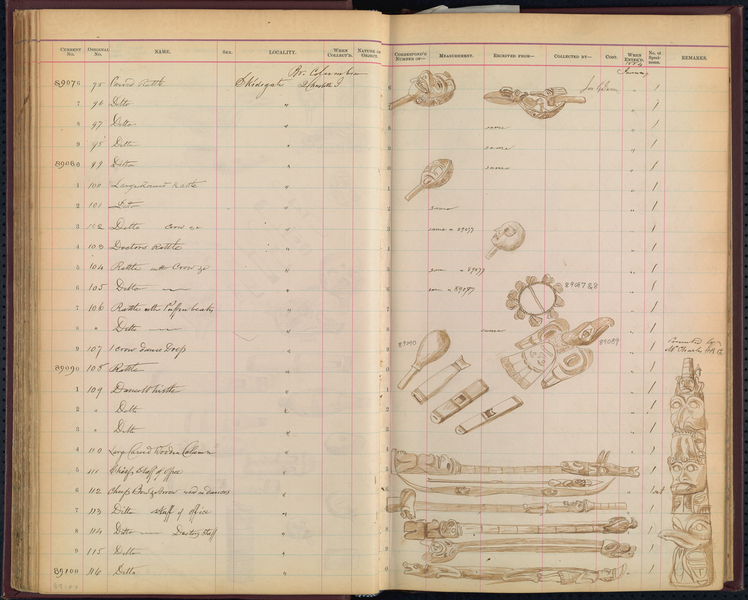 CURRENT No. ORIGINAL No. NAME. SEX. LOCALITY. WHEN COLLECT'D. NATURE OF OBJECT.
CORRESPOND'G NUMBER OF— MEASUREMENT. RECEIVED FROM— COLLECTED BY— COST. WHEN ENTER'D. No. of Specimens. REMARKS.
1884
January
Br. Columbia
89076 95 Carved Rattle Skidegate Q Charlotte I 1
7 96 Ditto " " 1
8 97 Ditto " same " 1
9 98 Ditto " same " 1
89080 99 Ditto " same " 1
1 100 Large dance Rattle " " 1
2 101 Ditto " same " 1
3 102 Ditto crow " same as 89077 " 1
4 103 Doctors Rattle " " 1
5 104 Rattle Crow " 89077 " 1
6 105 Ditto " 89077 " 1
89087 & 8
7 106 Rattle with Puffin beaks " " 1
8 " Ditto " same " 1
89090 89089
9 107 1 crow dance Drop " " 1
Presented by
89090 108 Rattle " " 1
1 109 Dance Whistle " " 1
2 " Ditto " " 1
3 " Ditto " " 1
4 110 Large Carved Wooden Column " " 1
5 111 Chiefs Staff of office " " 1
6 112 Chiefs used in dances " "
7 113 Ditto staff of office " " 1
8 114 Ditto Doctors Staff " " 1
9 115 Ditto " " 1
89100 116 Ditto " " 1
89100